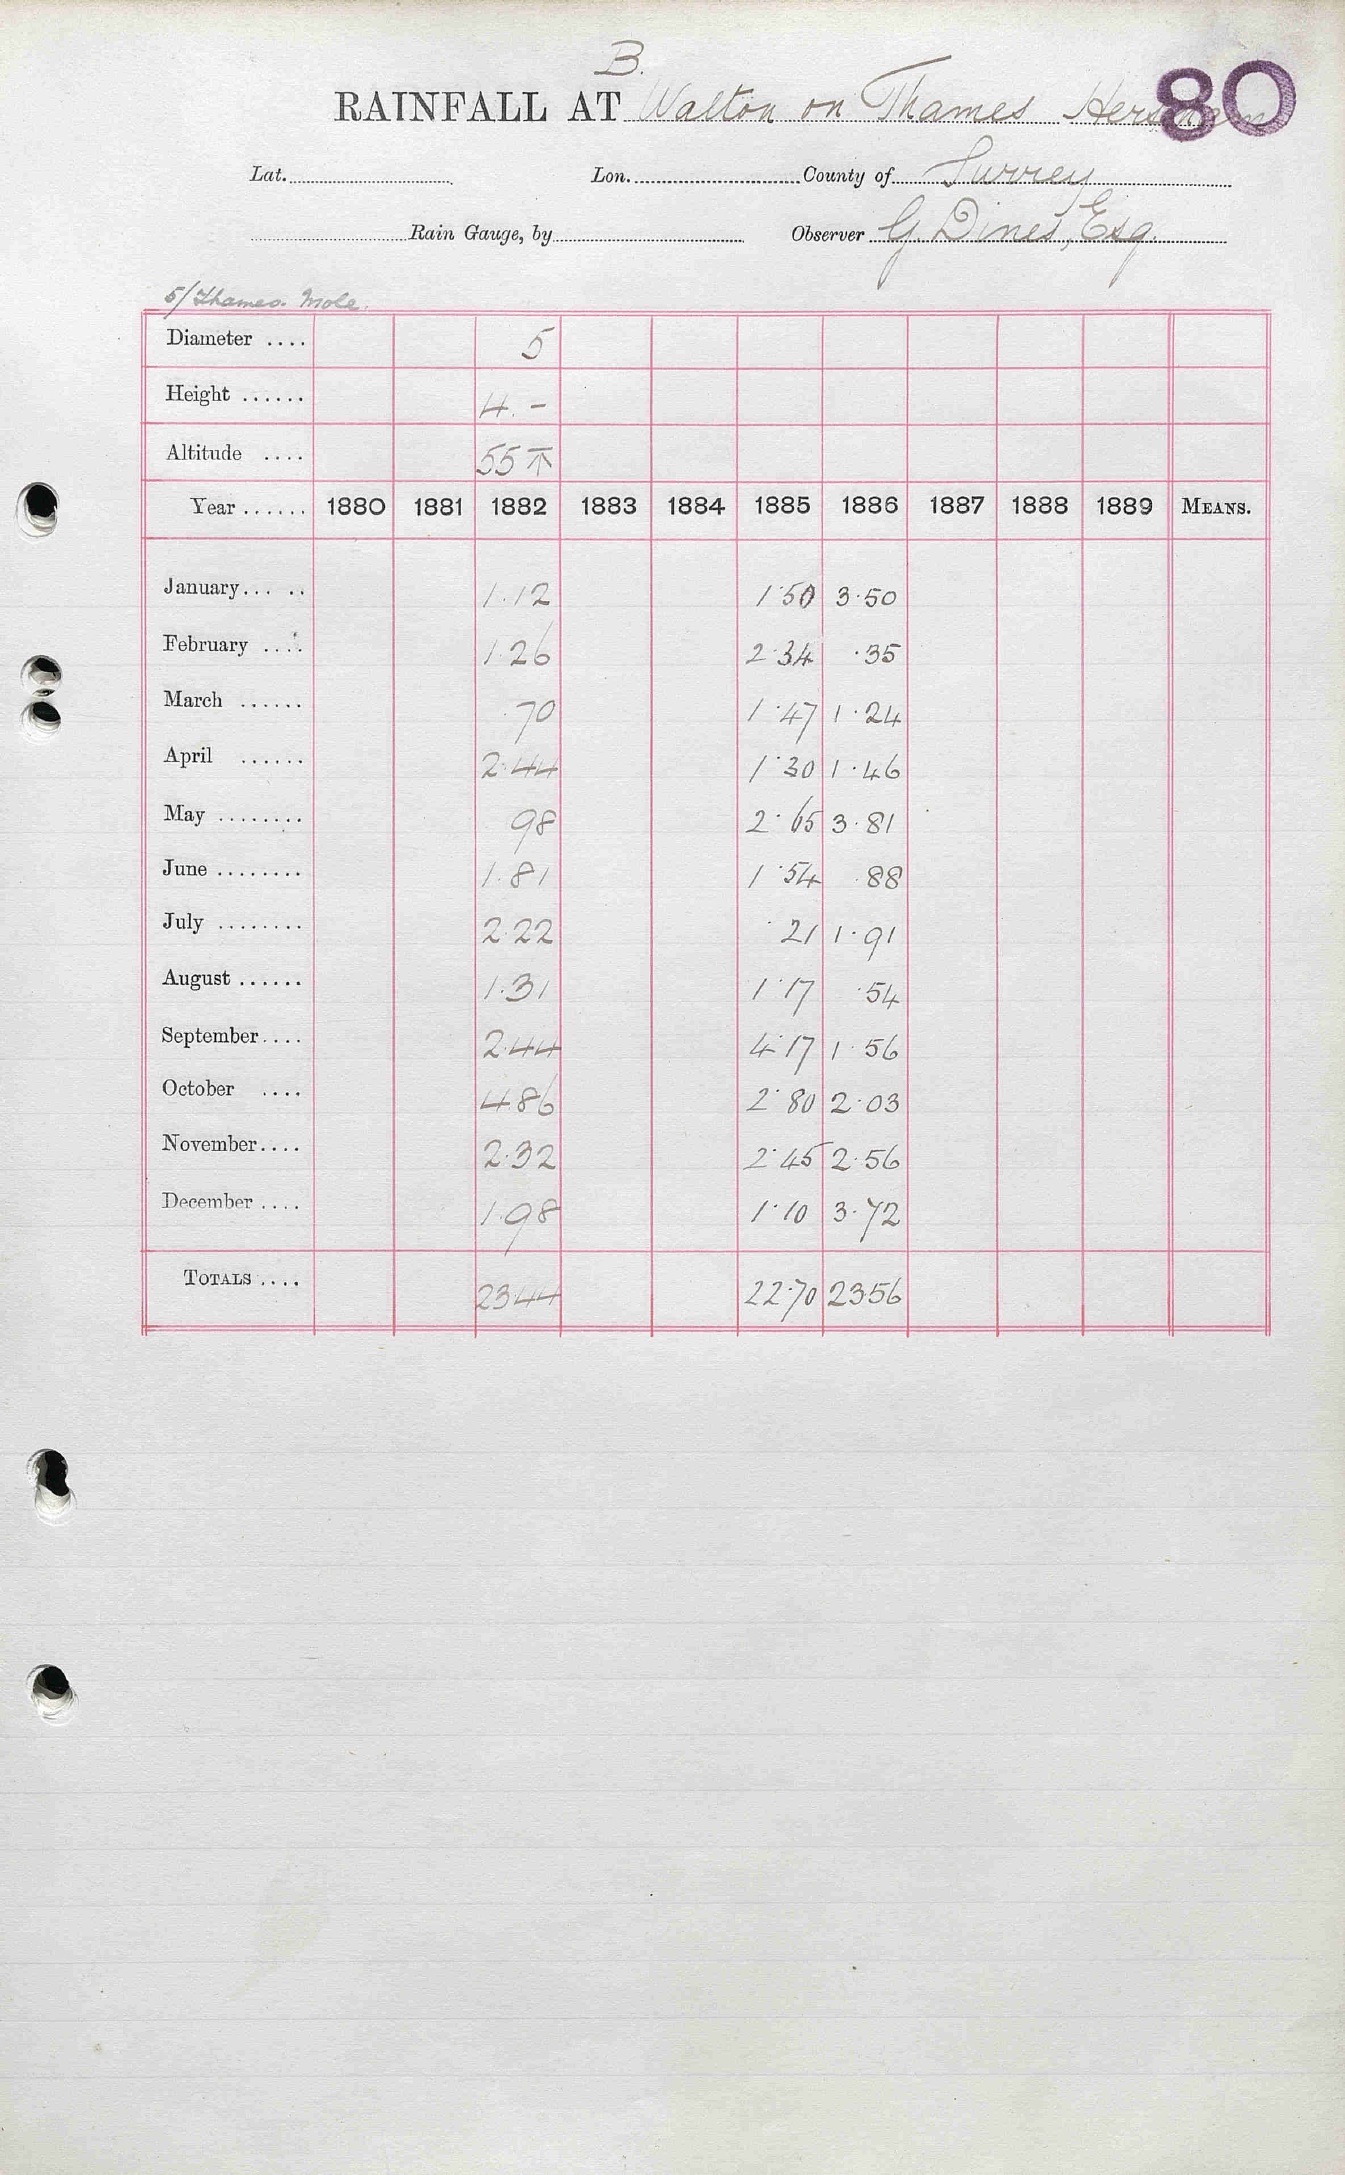 B.
RAINFALL AT Walton on Thames Hersham 80
Lat. Lon. County of Surrey
Rain Gauge, by Observer G. Dines, Esq.
5/ Thames. Mole.
Diameter .... 5
Height ...... 4. -
Altitude .... 55
Year ...... 1880 1881 1882 1883 1884 1885 1886 1887 1888 1889 MEANS.
January... .. 1.12 1.50 3.50
February .... 1.26 2.34 .35
March ...... .70 1.47 1.24
April ...... 2.44 1.30 1.46
May ........ 98 2.65 3.81
June ........ 1.81 1.54 .88
July ........ 2.22 .21 1.91
August ...... 1.31 1.17 .54
September.... 2.44 4.17 1.56
October .... 4.86 2.80 2.03
November.... 2.32 2.45 2.56
December .... 1.98 1.10 3.72
TOTALS .... 2344 22.70 23.56